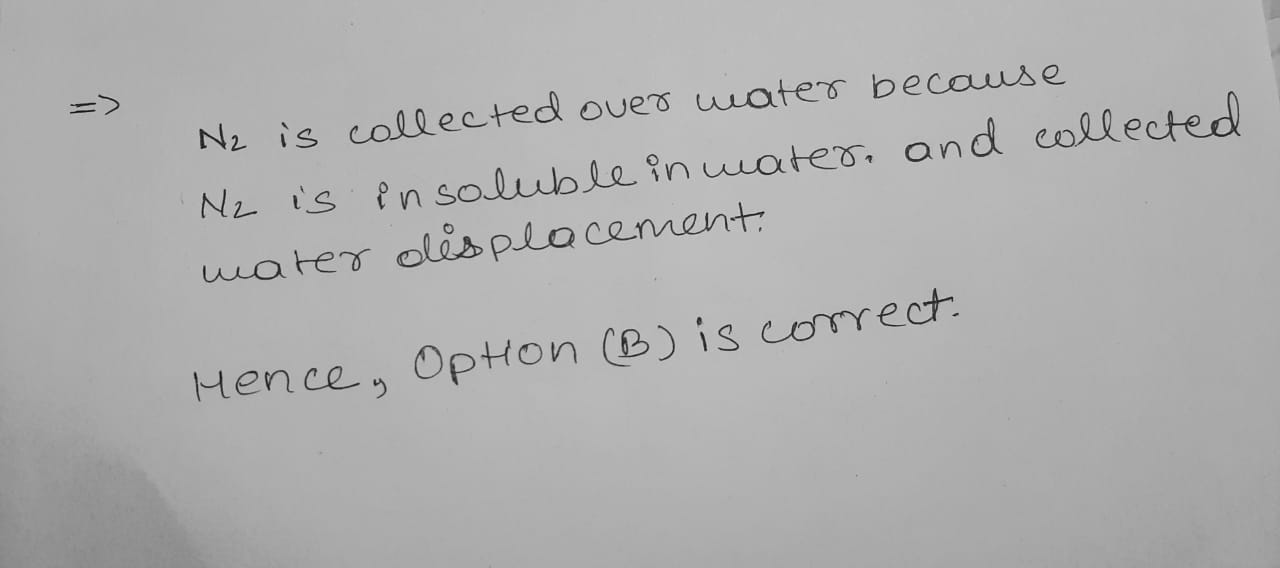 => N₂ is collected over water because
N₂ is insoluble in water. and collected
water displacement.
Hence, Option (B) is correct.